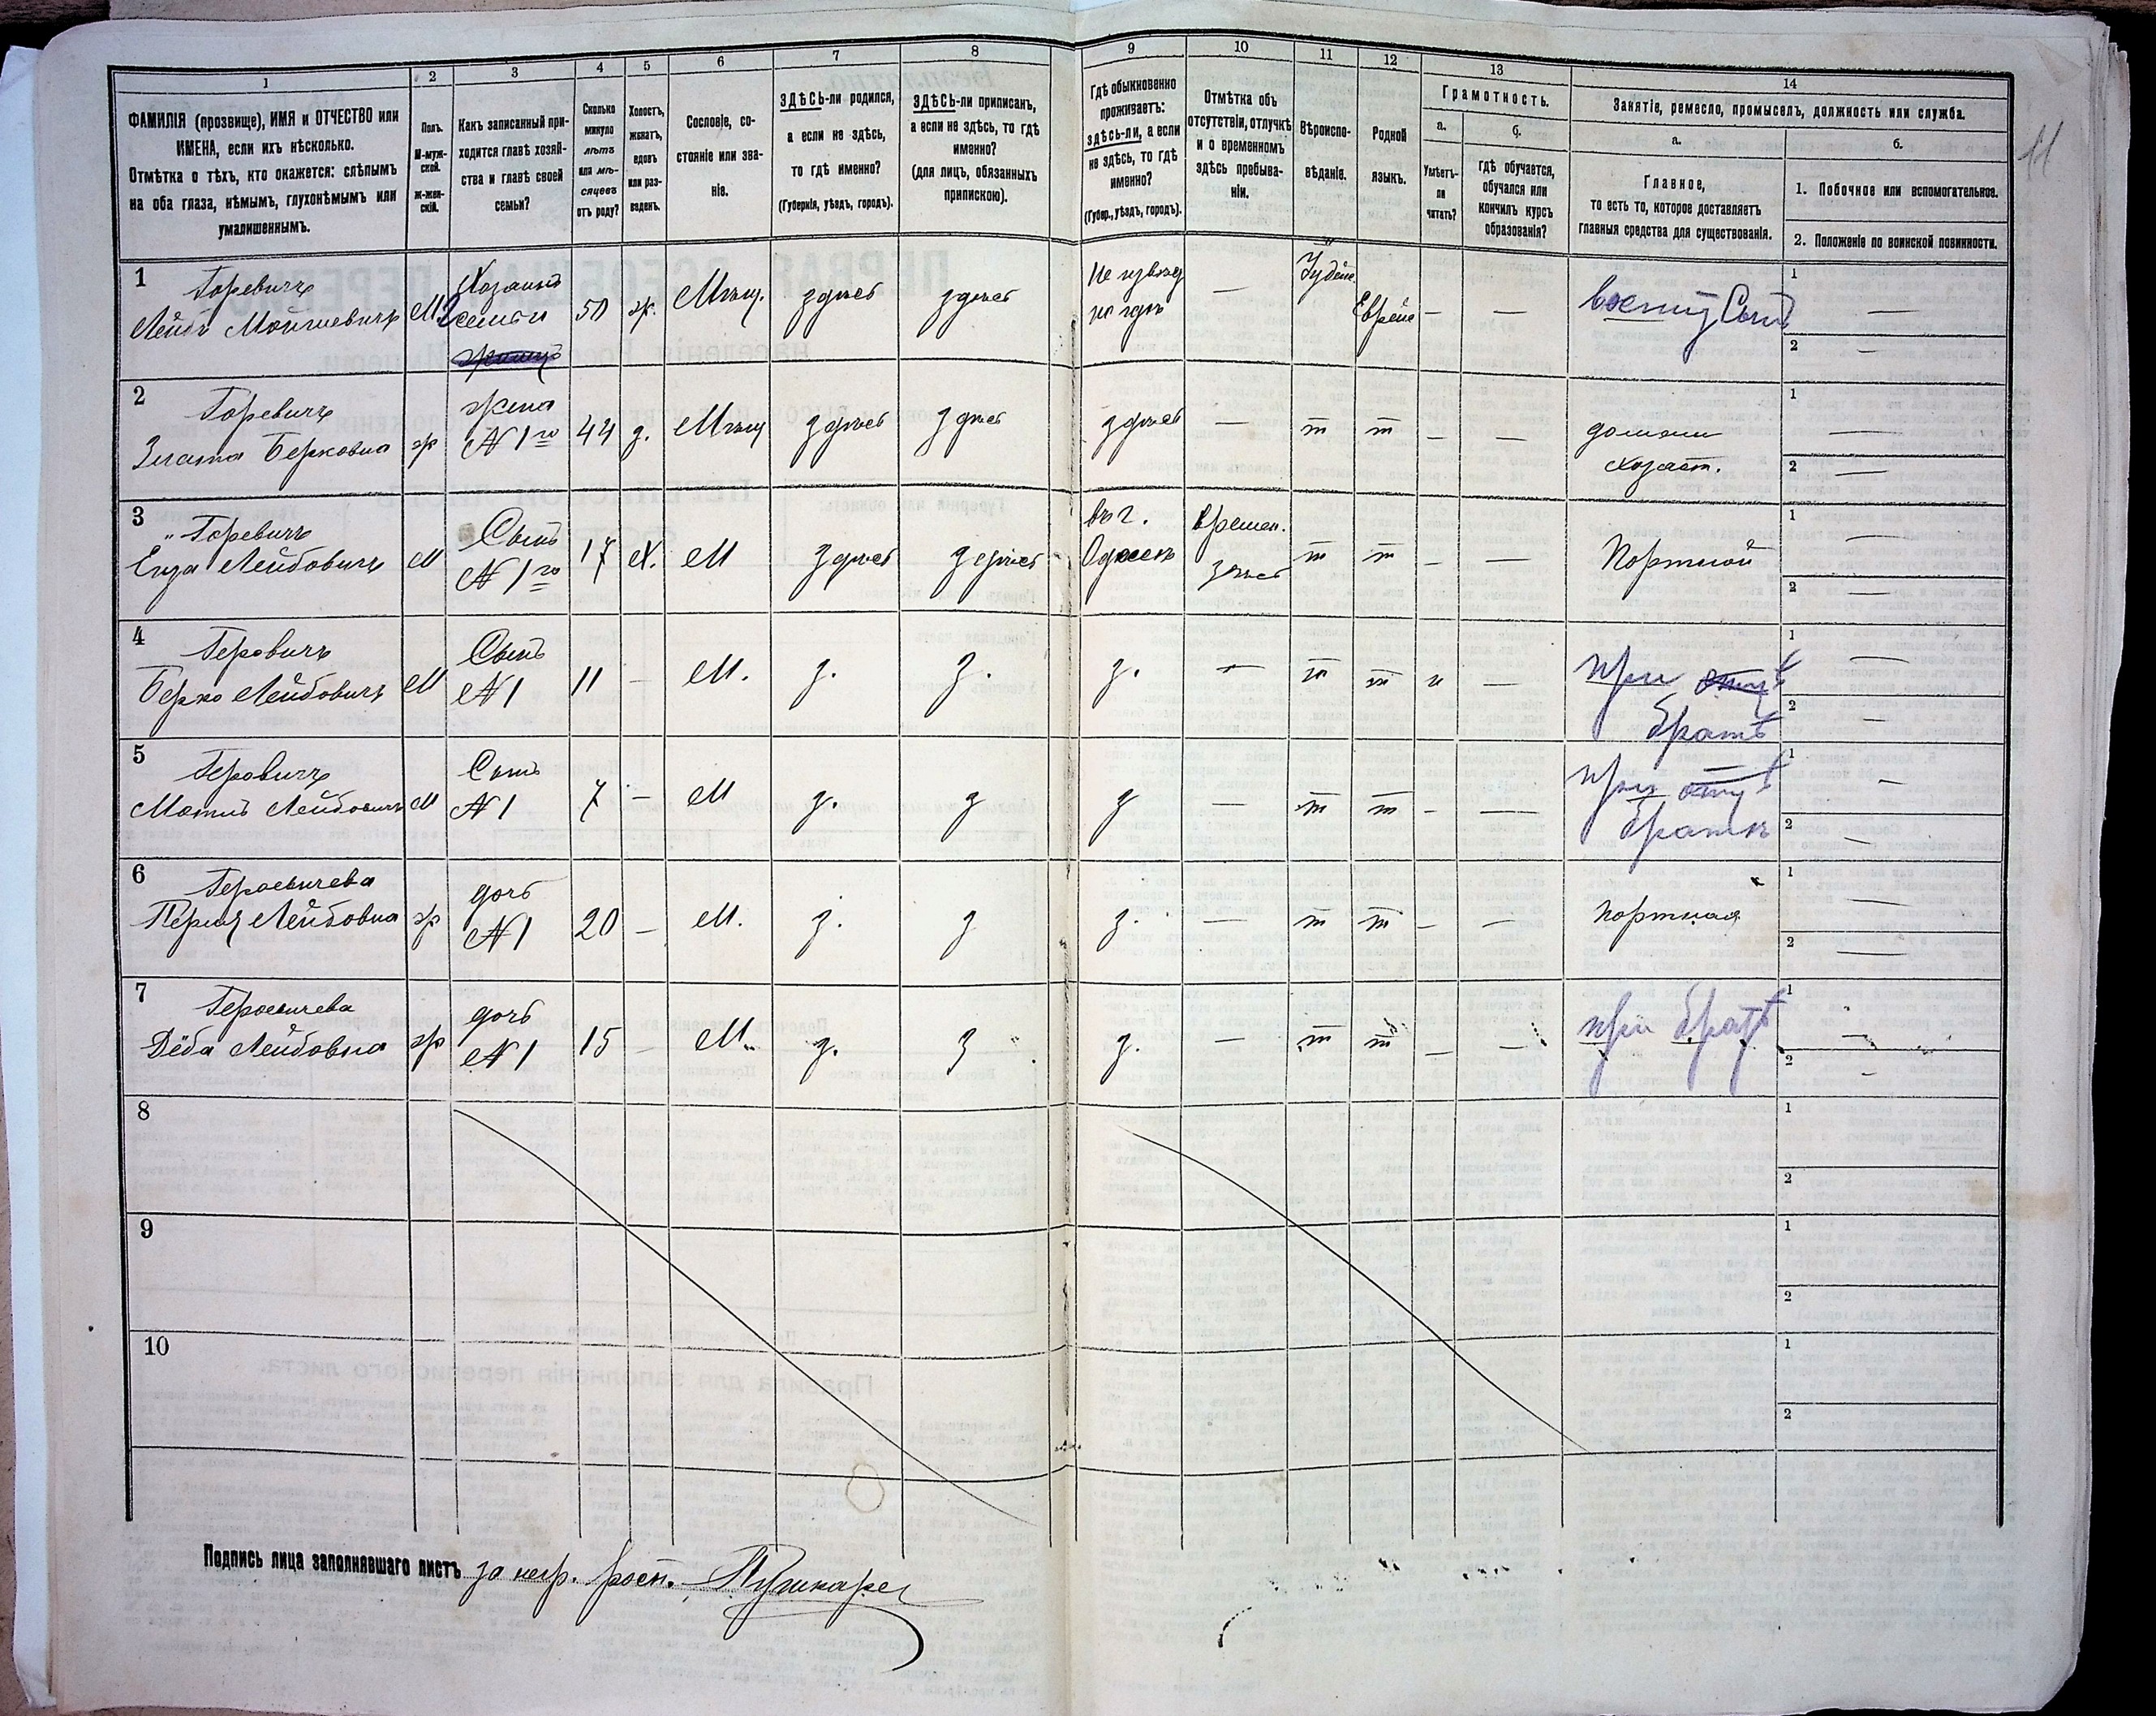 1 2 3 4 5 6 7 8 9 10 11 12 13 14
11
ФАМИЛІЯ (прозвище), ИМЯ и ОТЧЕСТВО или
ИМЕНА, если ихъ нѣсколько.
Отмѣтка о тѣхъ, кто окажется: слѣпымъ
на оба глаза, нѣмымъ, глухонѣмымъ или
умалишеннымъ.
Полъ.
М-муж-
ской.
Ж-жен-
скій.
Какъ записанный при-
ходится главѣ хозяй-
ства и главѣ своей
семьи?
Сколько
минуло
лѣтъ
или мѣ-
сяцевъ
отъ роду?
Холостъ,
женатъ,
вдовъ
или раз-
веденъ.
Сословіе, со-
стояніе или зва-
ніе.
ЗДѢСЬ-ли родился,
а если не здѣсь,
то гдѣ именно?
(Губернія, уѣздъ, городъ).
ЗДѢСЬ-ли приписанъ,
а если не здѣсь, то гдѣ
именно?
(для лицъ, обязанныхъ
припискою).
Гдѣ обыкновенно
проживаетъ:
здѣсь-ли, а если
не здѣсь, то гдѣ
именно?
(Губер., уѣздъ, городъ).
Отмѣтка объ
отсутствіи, отлучкѣ
и о временномъ
здѣсь пребыва-
ніи.
Вѣроиспо-
вѣданіе.
Родной
языкъ.
Грамотность.
а.
Умѣетъ-
ли
читать?
б.
гдѣ обучается,
обучался или
кончилъ курсъ
образованія?
Занятіе, ремесло, промыселъ, должность или служба.
а.
Главное,
то есть то, которое доставляетъ
главныя средства для существованія.
б.
1. Побочное или вспомогательное.
2. Положеніе по воинской повинности.
1
Горевичъ
Лейбъ
М
Хозяинъ
семьи
50 ж. Мѣщ. здѣсь здѣсь
— — — 1 —
2 —
2
Горевичъ
Злата Берковна ж
жена
№ 1го
44 з. Мѣщ здѣсь здѣсь здѣсь — т т — —
домашн
хозяст.
1 —
2 —
3
Горевичъ
Лейбовичъ М
Сынъ
№ 1го
17 Х. М здѣсь здѣсь
въ г.
времен.
т т — —
Портной
1 —
2 —
4
Геровичъ
Берко Лейбовичъ М
Сынъ
№ 1
11 — М. з. з. з. — т т н —
при отцѣ
братѣ
1 —
2 —
5
Геровичъ
Мотить Лейбовичъ М
Сынъ
№ 1
7 — М з. з з — т т — —
при отцѣ
братѣ
1 —
2 —
6
Лейбовна ж
дочь
№ 1
20 — М. з. з з. — т т — —
портная
1 —
2 —
7
Лейбовна ж
дочь
№ 1
15 — М. з. з з. — т т — —
при братѣ
1 —
2 —
8
1
2
9
1
2
10
1
2
Подпись лица заполнявшаго листъ за негр. росп.